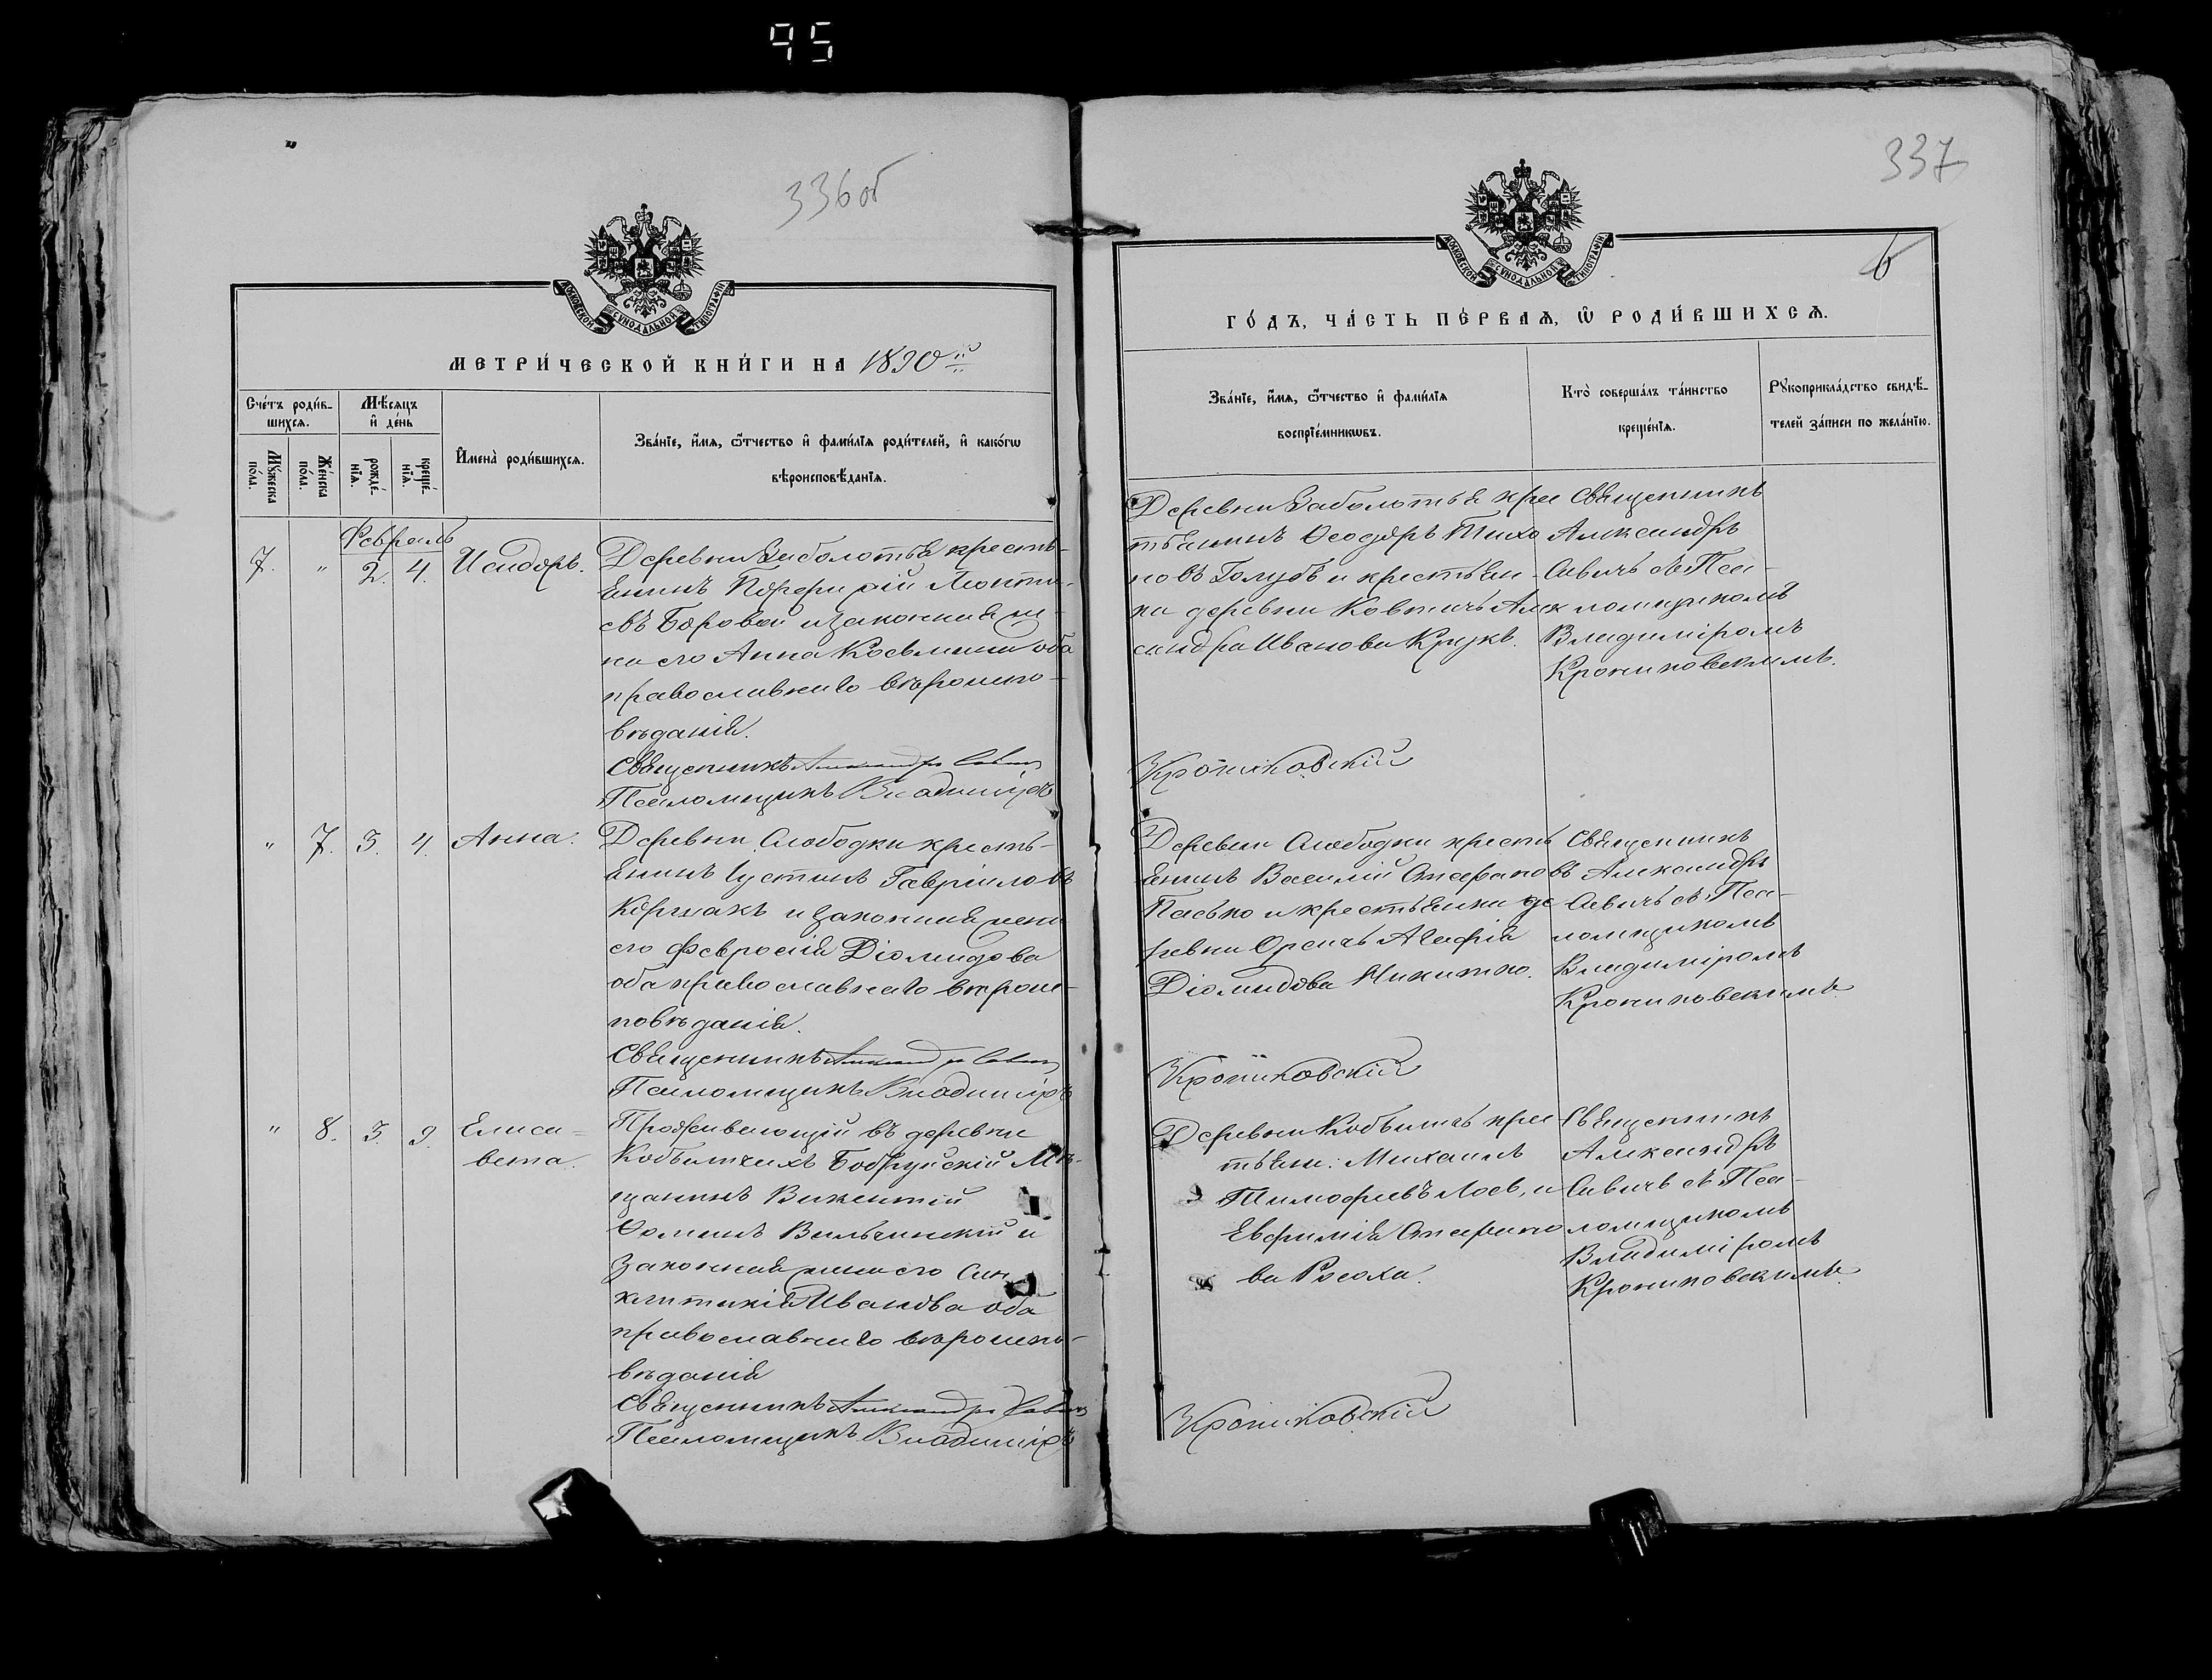 95
336об
МОСКОВСКОЙ СѴНОДАЛЬНОЙ ТИПОГРАФІИ
МЕТРИ́ЧЕСКОЙ КНИ́ГИ НА 1890й
Сче́тъ роди́в-
шихсѧ.
Мѣ́сѧцъ
и҆ де́нь
Мꙋ́жеска
по́ла.
Же́нска
по́ла.
рожде́-
нїѧ.
креще́-
нїѧ.
И҆мена̀ роди́вшихсѧ.
Зва́нїе, и҆́мѧ, ѻ҆́тчество и҆ фами́лїѧ роди́телей, и҆ како́гѡ
вѣроисповѣ́данїѧ.
Февраль
7. " 2. 4. Исидоръ.
Деревни Заболотья кресть-
янинъ Порфирій Леонті-
евъ Боровой и законная же-
на его Анна Косьмина оба
православнаго вѣроиспо-
вѣданія.
Священникъ Александръ Савичъ
Псаломщикъ Владиміръ
" 7. 3. 4. Анна.
Деревни Слободки кресть-
янинъ Іустинъ Гавріиловъ
Коржакъ и законная жена
его Февросія Діомидова
оба православнаго вѣроис-
повѣданія.
Священникъ Александръ Савичъ
Псаломщикъ Владиміръ
" 8. 3. 9. Елиса-
вета.
Проживающій въ деревнѣ
Бобруйскій Мѣ-
щанинъ Викентій
Ѳоминъ и
законная жена его Син-
клитикія Иванова оба
православнаго вѣроиспо-
вѣданія
Священникъ Александръ Савичъ
Псаломщикъ Владиміръ
337
6
МОСКОВСКОЙ СѴНОДАЛЬНОЙ ТИПОГРАФІИ
ГО́ДЪ, ЧА́СТЬ ПЕ́РВАѦ, Ѽ РОДИ́ВШИХСѦ.
Зва́нїе, и҆́мѧ, ѻ҆́тчество и҆ фами́лїѧ
воспрїе́мникѡвъ.
Кто̀ соверша́лъ та́инство
креще́нїѧ.
Рꙋкоприкла́дство свидѣ́-
телей за́писи по жела́нїю.
Деревни Заболотья крес
тьянинъ Ѳеодоръ Тихо
новъ Голубъ и крестьян-
ка деревни Ковтичъ Алек
сандра Иванова Крукъ.
Священникъ
Александръ
Савичъ съ Пса-
ломщикомъ
Владиміромъ
Крониковскимъ.
Крониковскій
Деревни Слободки кресть
янинъ Василій Стефановъ
Пасько и крестьянка де
ревни Оресичъ Агафія
Діомидова Никитко.
Священникъ
Александръ
Савичъ съ Пса-
ломщикомъ
Владиміромъ
Крониковскимъ.
Крониковскій
Деревни крес
тьян: Михаилъ
Тимофеевъ Лоев, и
Евфимія Стефано
ва Росоха.
Священникъ
Александръ
Савичъ съ Пса-
ломщикомъ
Владиміромъ
Крониковскимъ.
Крониковскій